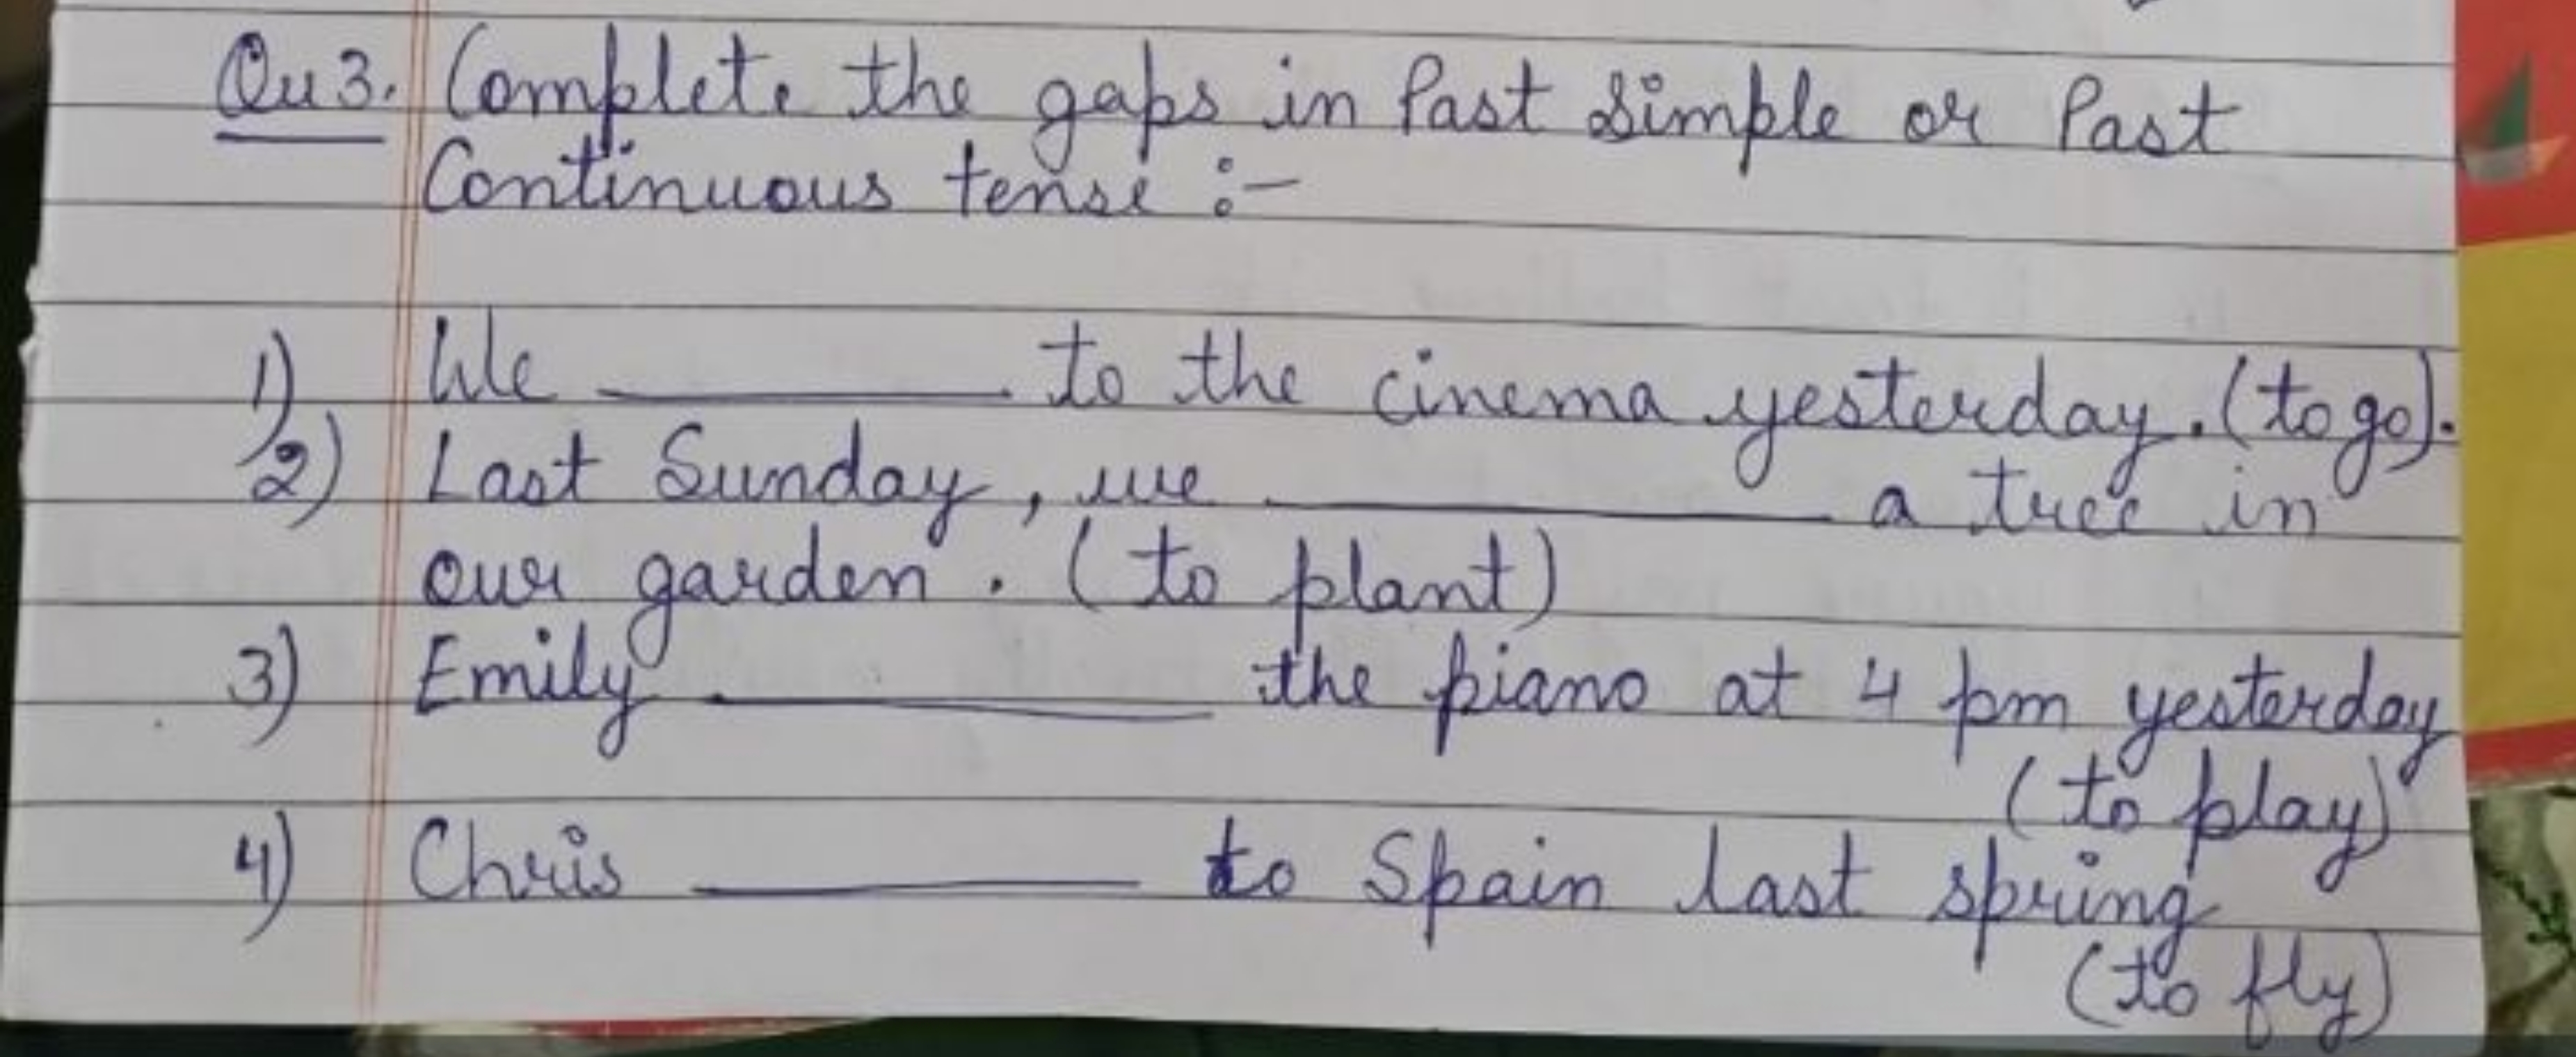 Qu 3. Complete the gaps in Past Simple or Past
Continuous tense :-
1) We ________ to the cinema yesterday. (to go).
2) Last Sunday, we ________ a tree in
our garden. (to plant)
3) Emily ________ the piano at 4 pm yesterday
(to play)
4) Chris ________ to Spain last spring
(to fly)